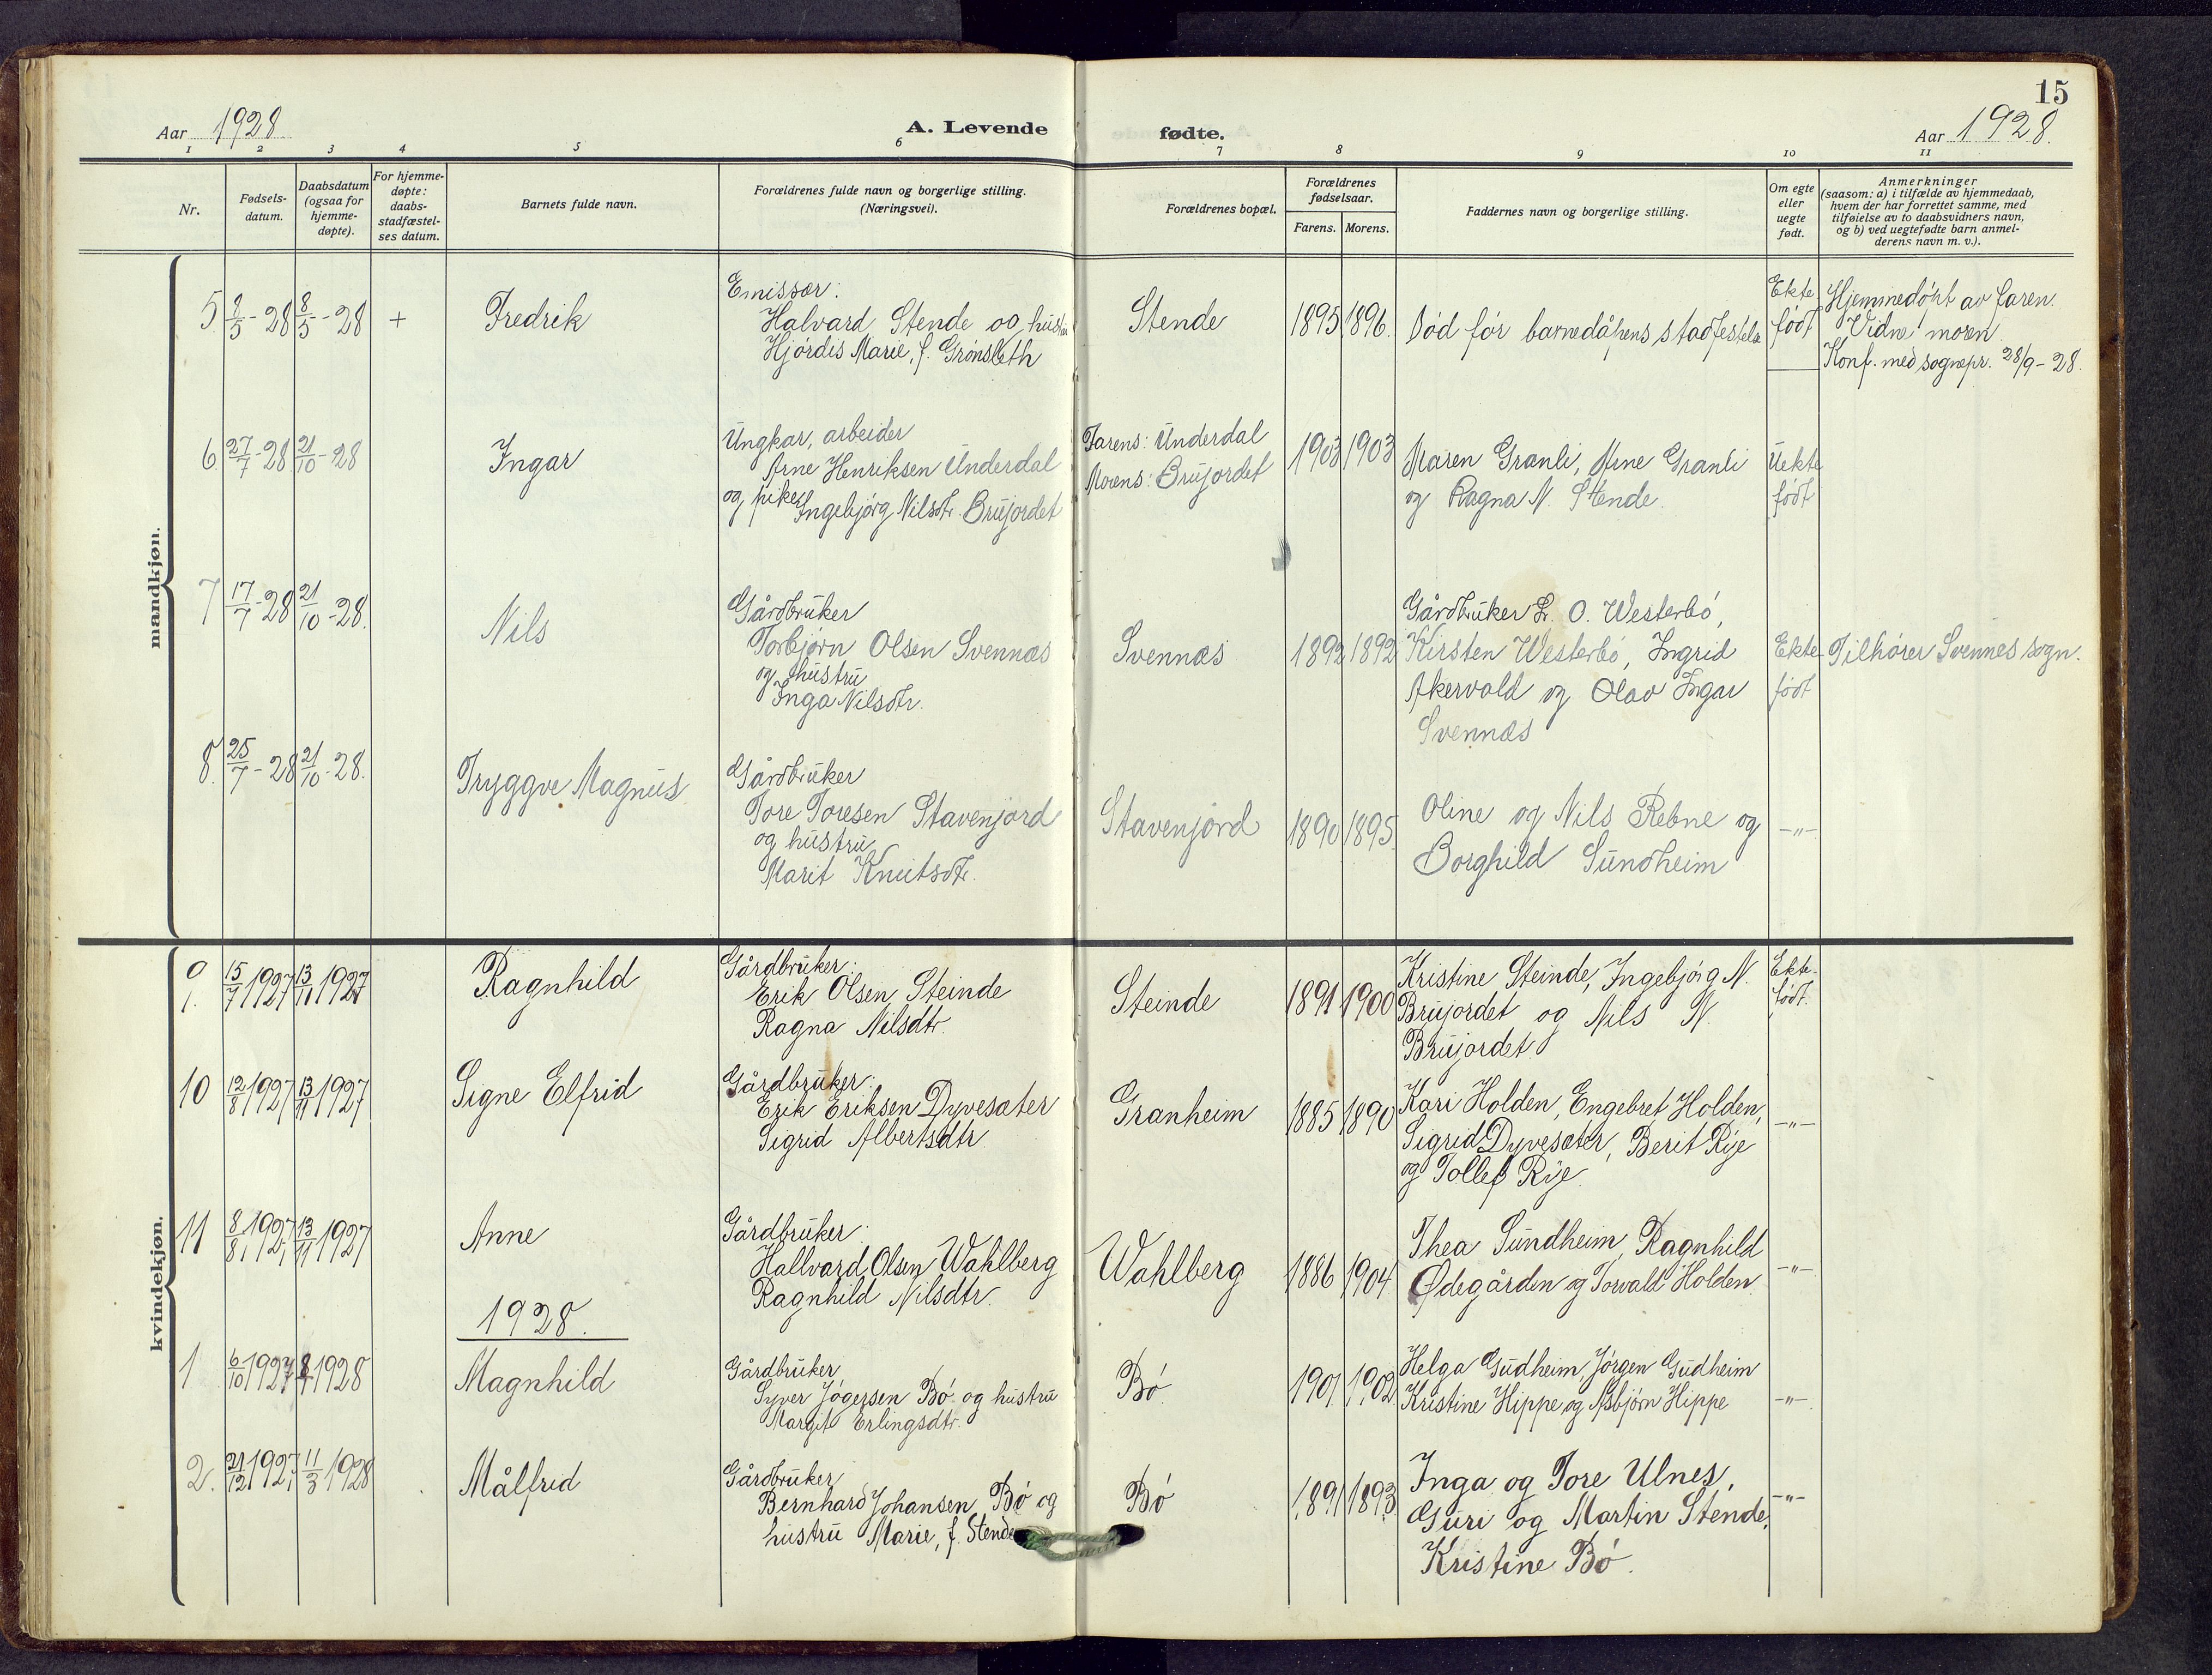 15
Aar 1928
A. Levende
fødte.
Aar 1928.
1 2 3 4 5 6 7 8 9 10 11
Nr.
Fødsels-
datum.
Daabsdatum
(ogsaa for
hjemme-
døpte).
For hjemme-
døpte:
daabs-
stadfæstel-
ses datum.
Barnets fulde navn.
Forældrenes fulde navn og borgerlige stilling.
(Næringsvei).
Forældrenes bopæl.
Forældrenes
fødselsaar.
Farens. Morens.
Faddernes navn og borgerlige stilling.
Om egte
eller
uegte
født.
Anmerkninger
(saasom: a) i tilfælde av hjemmedaab,
hvem der har forrettet samme, med
tilføielse av to daabsvidners navn,
og b) ved uegtefødte barn anmel-
derens navn m. v.).
mandkjøn.
5. 8/5-28 8/5-28 + Fredrik
Emissær:
Halvard Stende og hustru
Hjördis Marie, f. Grönsleth
Stende 1895 1896.
Död för barnedåpens stadfestelse
Ekte
födt
Hjemmedöpt av faren.
Vidne: moren.
Konf. med sognepr. 28/9-28.
6. 27/7-28 21/10-28 Ingar
Ungkar, arbeider
Arne Henriksen Underdal
og pike Ingebjörg Nilsdtr. Brujordet
Farens: Underdal
Morens: Brujordet
1903 1903
Maren Granli, Stine Granli
og Ragna N. Stende.
Uekte
födt
7 17/7-28 21/10-28. Nils
Gårdbruker
Torbjörn Olsen Svennæs
og hustru
Inga Nilsdtr.
Svennæs 1892 1892
Gårdbruker L. O. Westerbö,
Kirsten Westerbö, Ingrid
Akervold og Olav Ingar
Svennæs
Ekte
födt
Tilhører Svennes sogn.
8. 25/7-28 21/10-28. Tryggve Magnus
Gårdbruker
Tore Toresen Stavenjord
og hustru
Marit Knutsdtr.
Stavenjord 1890 1895.
Oline og Nils Rebne og
Borghild Sundheim
-"-
kvindekjøn.
9. 15/7 1927 13/11 1927 Ragnhild
Gårdbruker:
Erik Olsen Steinde
Ragna Nilsdtr.
Steinde 1891 1900
Kristine Steinde, Ingebjörg N.
Brujordet og Nils N.
Brujordet
Ekte
födt.
10 12/8 1927 13/11 1927 Signe Elfrid
Gårdbruker:
Erik Eriksen Dyvesæter
Sigrid Albertsdtr
Granheim 1885 1890
Kari Holden, Engebret Holden,
Sigrid Dyvesæter, Berit Rye
og Tollef Rye.
-"-
11 8/8 1927 13/11 1927 Anne
Gårdbruker:
Hallvard Olsen Wahlberg
Ragnhild Nilsdtr.
Wahlberg 1886 1904
Thea Sundheim, Ragnhild
Ødegården og Torvald Holden.
-"-
1928.
1 6/10 1927 8/1 1928 Magnhild
Gårdbruker
Syver Jögersen Bö og hustru
Margit Erlingsdtr.
Bö. 1901 1902.
Helga Gudheim, Jörgen Gudheim
Kristine Hippe og Asbjörn Hippe
-"-
2. 21/12 1927 11/3 1928 Målfrid
Gårdbruker
Bernhard Johansen Bö og
hustru Marie, f. Stende
Bö 1891 1893.
Inga og Tore Ulnes,
Guri og Martin Stende,
Kristine Bö.
-"-